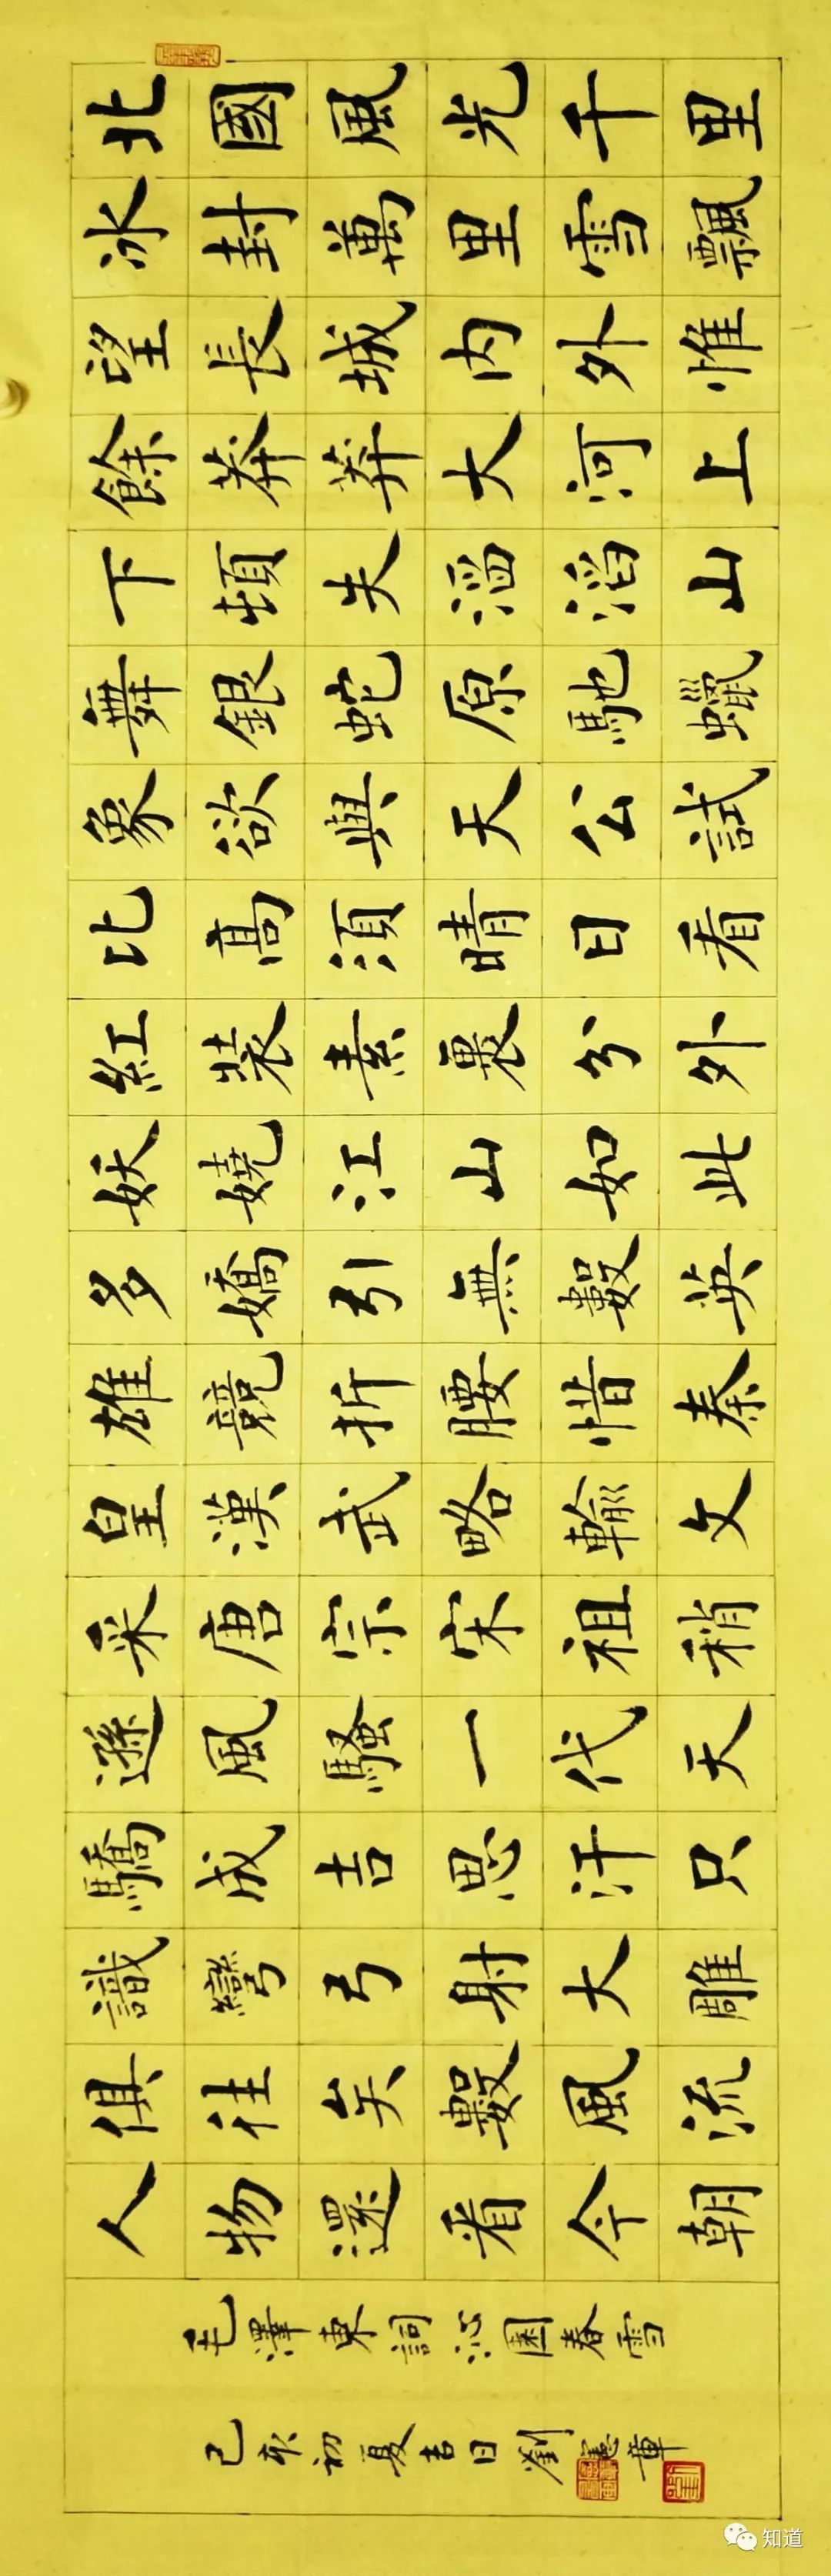 北國風光千里
冰封萬里雪飄
望長城内外惟
餘莽莽大河上
下頓失滔滔山
舞銀蛇原馳蠟
象欲與天公試
比高須晴日看
紅裝素裹分外
妖嬈江山如此
多嬌引無數英
雄競折腰惜秦
皇漢武略輸文
采唐宗宋祖稍
遜風騷一代天
驕成吉思汗只
識彎弓射大雕
俱往矣數風流
人物還看今朝
毛澤東詞沁園春雪
己亥初夏吉日劉憲章
知道